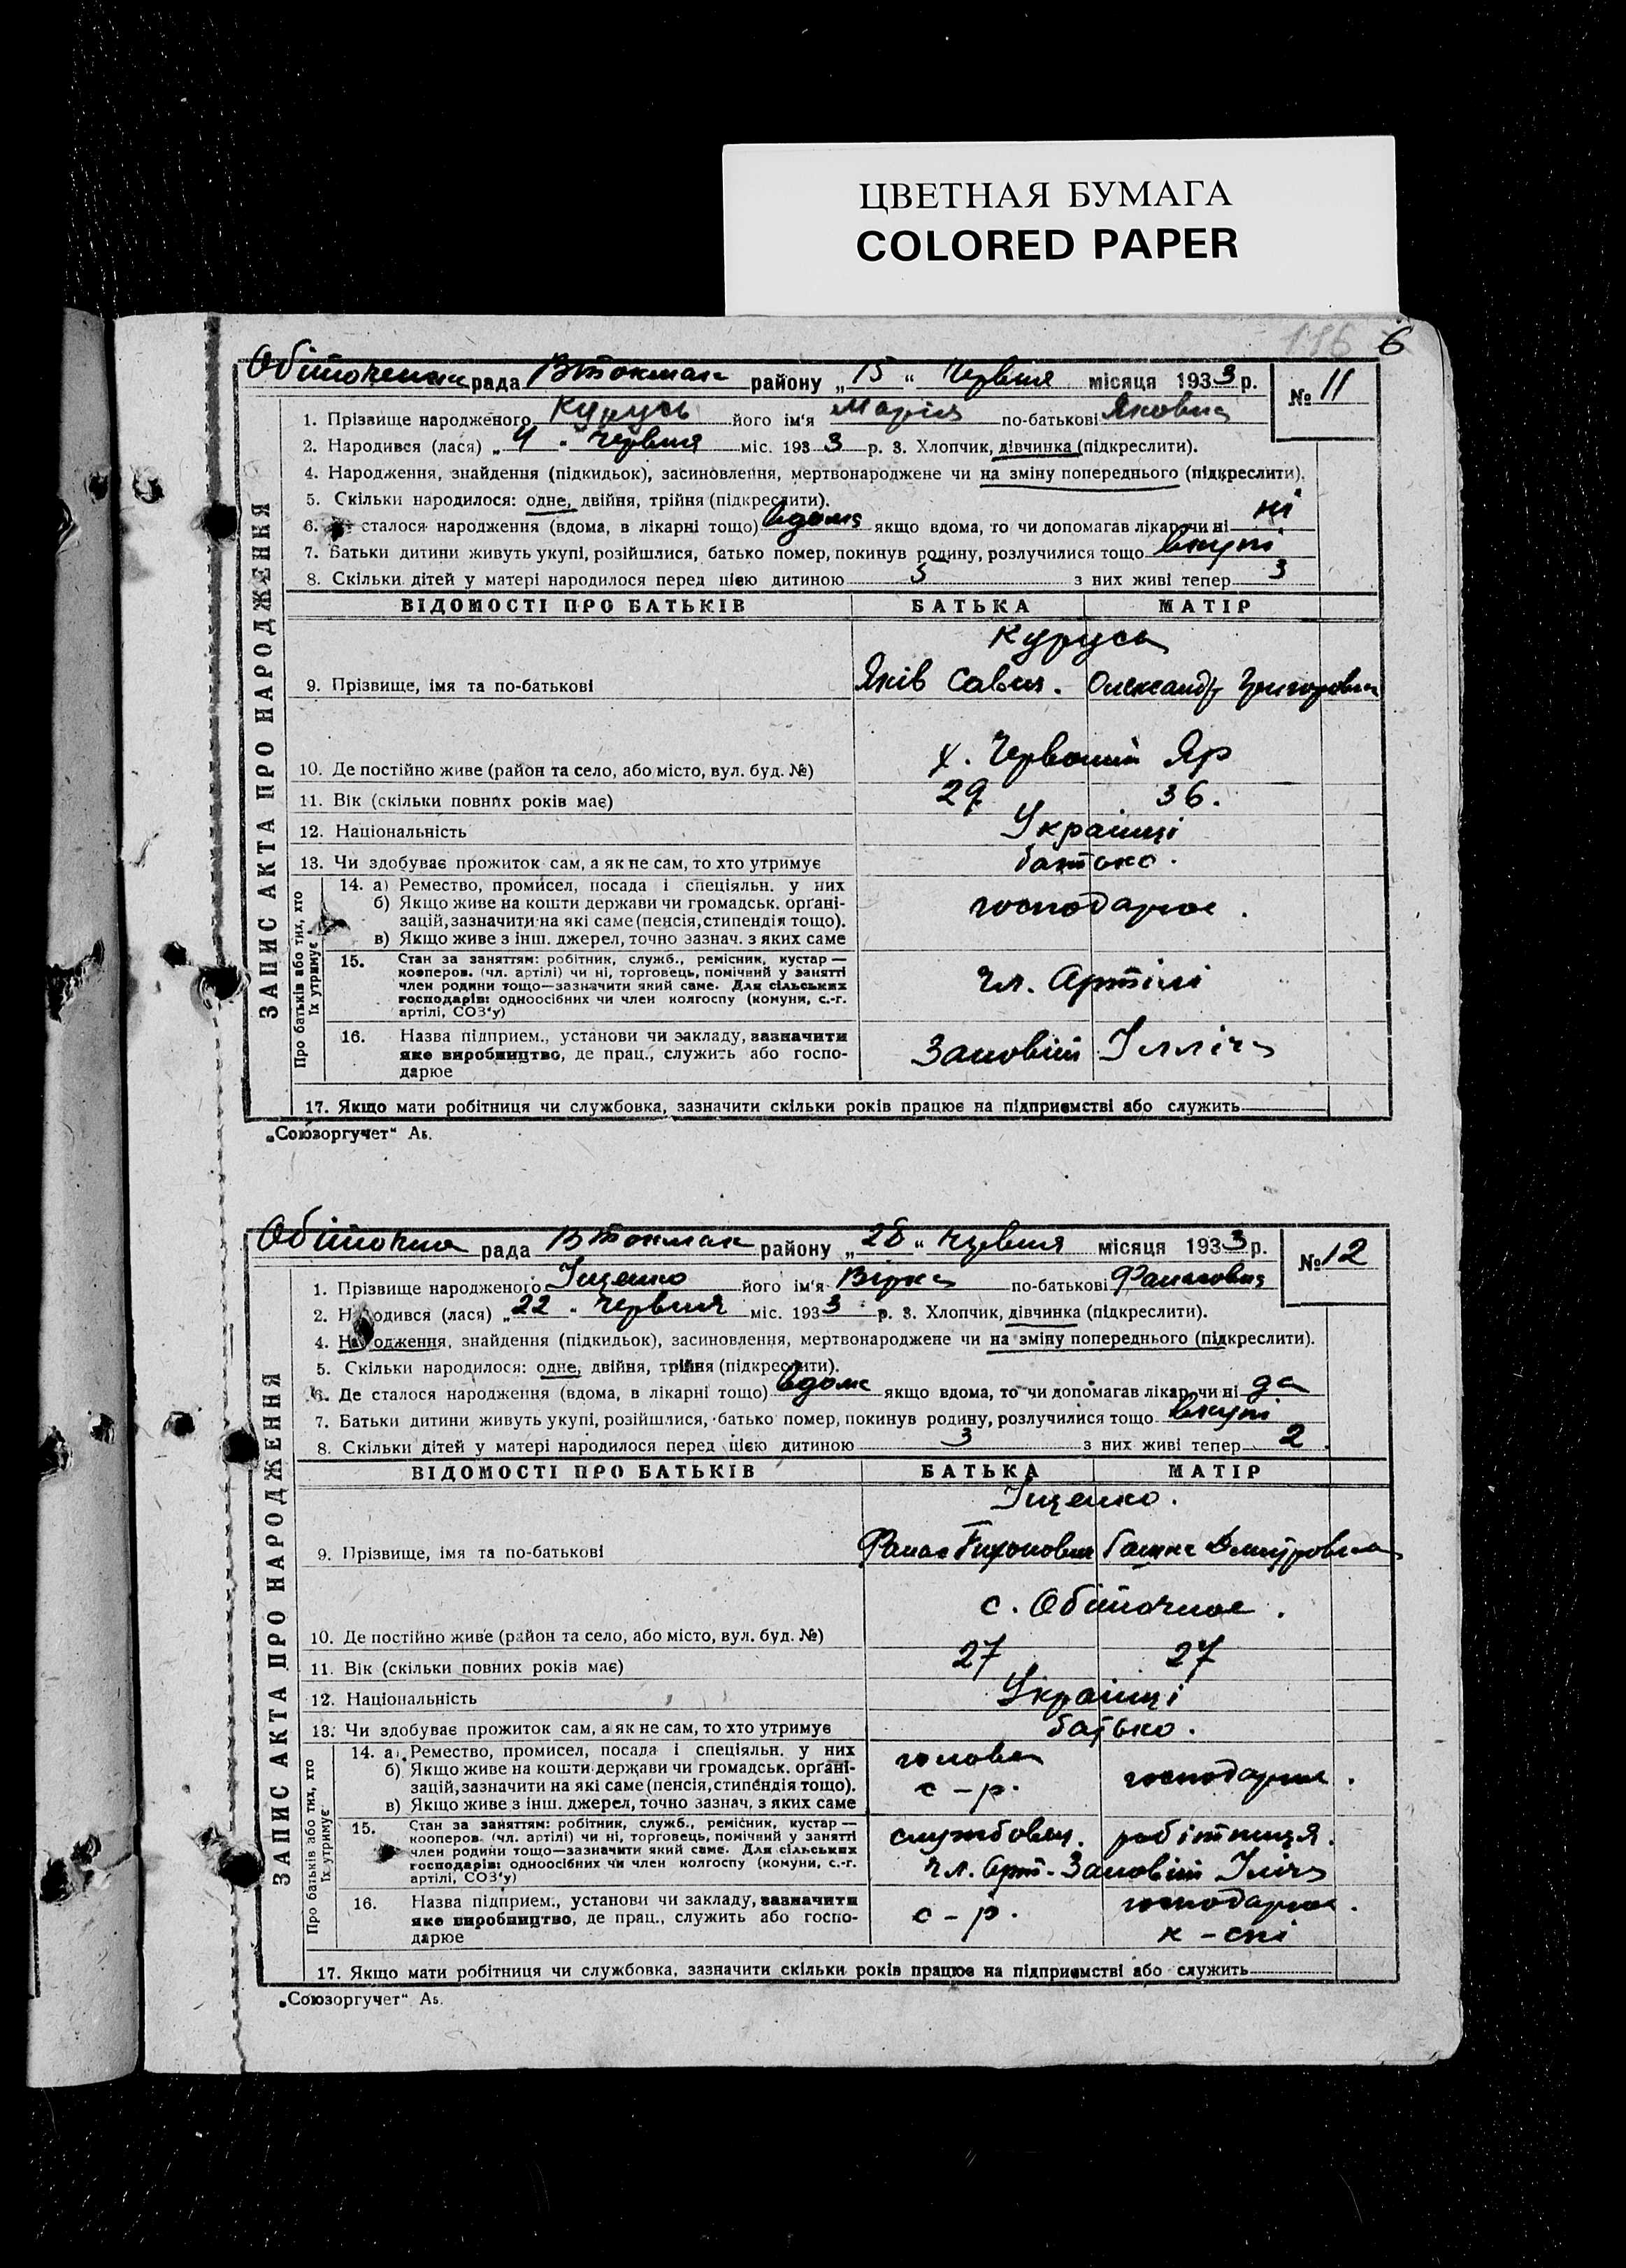 ЦВЕТНАЯ БУМАГА
COLORED PAPER
6
рада В Токмак району „15“ Червня місяця 1933 р.
№ 11
1. Прізвище народженого Курусь його ім'я Марія по-батькові Яковна
2. Народився (лася) „4 - Червня міс. 1933 р. 3. Хлопчик, дівчинка (підкреслити).
4. Народження, знайдення (підкидьок), засиновлення, мертвонароджене чи на зміну попереднього (підкреслити).
5. Скільки народилося: одне, двійня, трійня (підкреслити).
6. сталося народження (вдома, в лікарні тощо) вдома якщо вдома, то чи допомагав лікар чи ні ні
7. Батьки дитини живуть укупі, розійшлися, батько помер, покинув родину, розлучилися тощо вкупі
8. Скільки дітей у матері народилося перед цією дитиною з них живі тепер 3
ВІДОМОСТІ ПРО БАТЬКІВ БАТЬКА МАТІР
ЗАПИС АКТА ПРО НАРОДЖЕННЯ
Курусь
9. Прізвище, імя та по-батькові Яків Савич. Олександр Григоровна
10. Де постійно живе (район та село, або місто, вул. буд. №) х. Червоний Яр
11. Вік (скільки повних років має) 29 36.
12. Національність Українці
13. Чи здобуває прожиток сам, а як не сам, то хто утримує батько.
Про батьків або тих, хто їх утримує
14. а) Ремество, промисел, посада і спеціяльн. у них
б) Якщо живе на кошти держави чи громадськ. організацій, зазначити на які саме (пенсія, стипендія тощо). господарює.
в) Якщо живе з інш. джерел, точно зазнач. з яких саме
15. Стан за заняттям: робітник, служб., ремісник, кустар —
кооперов. (чл. артілі) чи ні, торговець, помічний у занятті
член родини тощо—зазначити який саме. Для сільських
господарів: одноосібних чи член колгоспу (комуни, с.-г.
артілі, СОЗ'у) чл. Артілі
16. Назва підприєм., установи чи закладу, зазначити
яке виробництво, де прац., служить або госпо-
дарює Заповіт Ілліча
17. Якщо мати робітниця чи службовка, зазначити скільки років працює на підприємстві або служить
„Союзоргучет“ Аб.
Обіточна рада В Токмак району „28“ Червня місяця 1933 р.
№ 12
1. Прізвище народженого Іщенко його ім'я Вірка по-батькові
2. Народився (лася) „22 - Червня міс. 1933 р. 3. Хлопчик, дівчинка (підкреслити).
4. Народження, знайдення (підкидьок), засиновлення, мертвонароджене чи на зміну попереднього (підкреслити).
5. Скільки народилося: одне, двійня, трійня (підкреслити).
6. Де сталося народження (вдома, в лікарні тощо) вдома якщо вдома, то чи допомагав лікар чи ні да
7. Батьки дитини живуть укупі, розійшлися, батько помер, покинув родину, розлучилися тощо вкупі
8. Скільки дітей у матері народилося перед цією дитиною 3 з них живі тепер 2
ВІДОМОСТІ ПРО БАТЬКІВ БАТЬКА МАТІР
ЗАПИС АКТА ПРО НАРОДЖЕННЯ
Іщенко.
9. Прізвище, імя та по-батькові Фанас Тихонович Ганна Дмитровна
с. Обіточное.
10. Де постійно живе (район та село, або місто, вул. буд. №)
11. Вік (скільки повних років має) 27 27
12. Національність Українці
13. Чи здобуває прожиток сам, а як не сам, то хто утримує батько.
Про батьків або тих, хто їх утримує
14. а) Ремество, промисел, посада і спеціяльн. у них голова
б) Якщо живе на кошти держави чи громадськ. органі-
зацій, зазначити на які саме (пенсія, стипендія тощо). с-р. господарює.
в) Якщо живе з інш. джерел, точно зазнач. з яких саме
15. Стан за заняттям: робітник, служб., ремісник, кустар —
кооперов. (чл. артілі) чи ні, торговець, помічний у занятті службовец. робітниця.
член родини тощо—зазначити який саме. Для сільських
господарів: одноосібних чи член колгоспу (комуни, с.-г. чл. Арт. Заповіт Ілліча
артілі, СОЗ'у)
16. Назва підприєм., установи чи закладу, зазначити господарює.
яке виробництво, де прац., служить або госпо- с-р.
дарює к-спі
17. Якщо мати робітниця чи службовка, зазначити скільки років працює на підприємстві або служить
„Союзоргучет“ Аб.